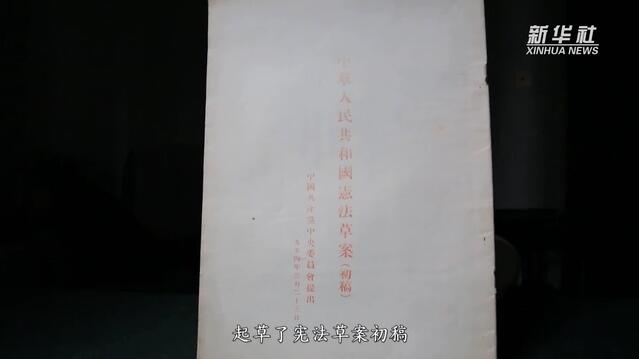 新华社
XINHUA NEWS
中華人民共和國憲法草案（初稿）
中國共產黨中央委員會提出
一九五四年三月二十三日
起草了宪法草案初稿